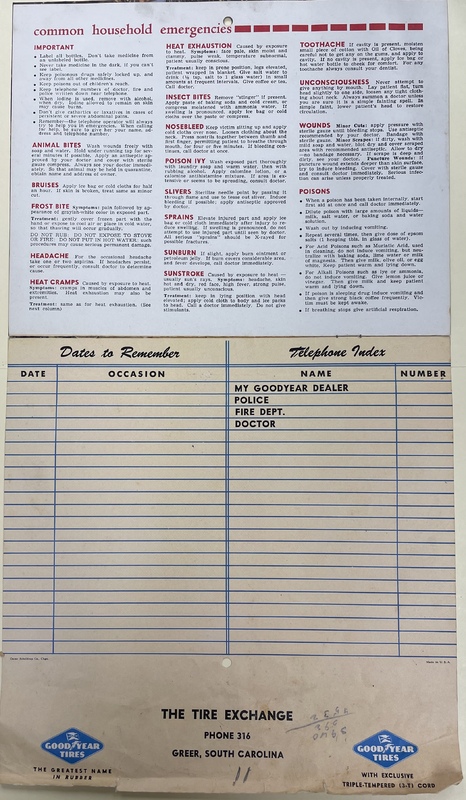 common household emergencies
IMPORTANT
Label all bottles. Don't take medicine from
an unlabeled bottle.
Never take medicine in the dark, if you can't
see label.
Keep poisonous drugs safely locked up, and
away from other medicines.
Keep poisons out of children's reach.
Keep telephone numbers of doctor, fire and
police written down near telephone.
Don't give cathartics or laxatives in cases of
persistent or severe abdominal pains.
Remember—the telephone operator will always
try to help you in emergencies. When calling
for help, be sure to give her your name, ad-
dress and telephone number.
ANIMAL BITES Wash wounds freely with
soap and water. Hold under running tap for sev-
eral minutes if possible. Apply an antiseptic ap-
proved by your doctor and cover with sterile
gauze compress. Always see your doctor immedi-
ately. So that animal may be held in quarantine,
obtain name and address of owner.
BRUISES Apply ice bag or cold cloths for half
an hour. If skin is broken, treat same as minor
cut.
FROST BITE Symptoms: pain followed by ap-
pearance of grayish-white color in exposed part.
Treatment: gently cover frozen part with the
hand or expose to cool air or place in cold water,
so that thawing will occur gradually.
DO NOT RUB: DO NOT EXPOSE TO STOVE
OR FIRE: DO NOT PUT IN HOT WATER: such
procedures may cause serious permanent damage.
HEADACHE For the occasional headache
take one or two aspirins. If headaches persist,
or occur frequently, consult doctor to determine
cause.
HEAT CRAMPS Caused by exposure to heat.
Symptoms: cramps in muscles of abdomen and
extremities. Heat exhaustion may also be
present.
Treatment: same as for heat exhaustion. (See
next column)
HEAT EXHAUSTION Caused by exposure
to heat. Symptoms: face pale, skin moist and
clammy, pulse weak, temperature subnormal,
patient usually conscious.
Treatment: keep in prone position, legs elevated,
patient wrapped in blanket. Give salt water to
drink (¼ tsp. salt to ½ glass water) in small
amounts at frequent intervals. Give coffee or tea.
Call doctor.
INSECT BITES Remove "stinger" if present.
Apply paste of baking soda and cold cream, or
compress moistened with ammonia water. If
swelling is pronounced, apply ice bag or cold
cloths over the paste or compress.
NOSEBLEED Keep victim sitting up and apply
cold cloths over nose. Loosen clothing about the
neck. Press nostrils together between thumb and
first finger, permitting patient to breathe through
mouth, for four or five minutes. If bleeding con-
tinues, call doctor at once.
POISON IVY Wash exposed part thoroughly
with laundry soap and warm water, then with
rubbing alcohol. Apply calamine lotion, or a
calamine antihistamine mixture. If area is ex-
tensive or seems to be spreading, consult doctor.
SLIVERS Sterilize needle point by passing it
through flame and use to tease out sliver. Induce
bleeding if possible: apply antiseptic approved
by doctor.
SPRAINS Elevate injured part and apply ice
bag or cold cloth immediately after injury to re-
duce swelling. If swelling is pronounced, do not
attempt to use injured part until seen by doctor.
All serious "sprains" should be X-rayed for
possible fractures.
SUNBURN If slight, apply burn ointment or
petroleum jelly. If burn covers considerable area,
and fever develops, call doctor immediately.
SUNSTROKE Caused by exposure to heat —
usually sun's rays. Symptoms: headache, skin
hot and dry, red face, high fever, strong pulse,
patient usually unconscious.
Treatment: keep in lying position with head
elevated; apply cold cloth to head and ice packs
to head. Call a doctor immediately. Do not give
stimulants.
TOOTHACHE If cavity is present, moisten
small piece of cotton with Oil of Cloves, being
careful not to get any on the gums, and apply to
cavity. If no cavity is present, apply ice bag or
hot water bottle to cheek for comfort. For any
toothache always consult your dentist.
UNCONSCIOUSNESS Never attempt to
give anything by mouth. Lay patient flat, turn
head slightly to one side, loosen any tight cloth-
ing about neck. Always summon a doctor unless
you are sure it is a simple fainting spell. In
simple faint, lower patient's head to restore
circulation.
WOUNDS Minor Cuts: apply pressure with
sterile gauze until bleeding stops. Use antiseptic
recommended by your doctor. Bandage with
sterile gauze. Minor Scrapes: if dirty, wash with
mild soap and water, blot dry and cover scraped
area with recommended antiseptic. Allow to dry
— no bandage necessary. If scrape is deep and
dirty, see your doctor. Puncture Wounds: if
puncture wound extends deeper than skin surface,
try to induce bleeding. Cover with sterile gauze
and consult doctor immediately. Serious infec-
tion can arise unless properly treated.
POISONS
When a poison has been taken internally, start
first aid at once and call doctor immediately.
Dilute poison with large amounts of liquids—
milk, salt water, or baking soda and water
solution.
Wash out by inducing vomiting.
Repeat several times, then give dose of epsom
salts (1 heaping tsp. in glass of water).
For Acid Poisons such as Muriatic Acid, used
in cleaning, do not induce vomiting, but neu-
tralize with baking soda, lime water or milk
of magnesia. Then give milk, olive oil, or egg
white. Keep patient warm and lying down.
For Alkali Poisons such as lye or ammonia,
do not induce vomiting. Give lemon juice or
vinegar. Then give milk and keep patient
warm and lying down.
If poison is sleeping drug induce vomiting and
then give strong black coffee frequently. Vic-
tim must be kept awake.
If breathing stops give artificial respiration.
Dates to Remember
Telephone Index
DATE OCCASION NAME NUMBER
MY GOODYEAR DEALER
POLICE
FIRE DEPT.
DOCTOR
THE TIRE EXCHANGE
PHONE 316
GREER, SOUTH CAROLINA
11
GOODYEAR
TIRES
THE GREATEST NAME
IN RUBBER
GOODYEAR
TIRES
WITH EXCLUSIVE
TRIPLE-TEMPERED (3-T) CORD